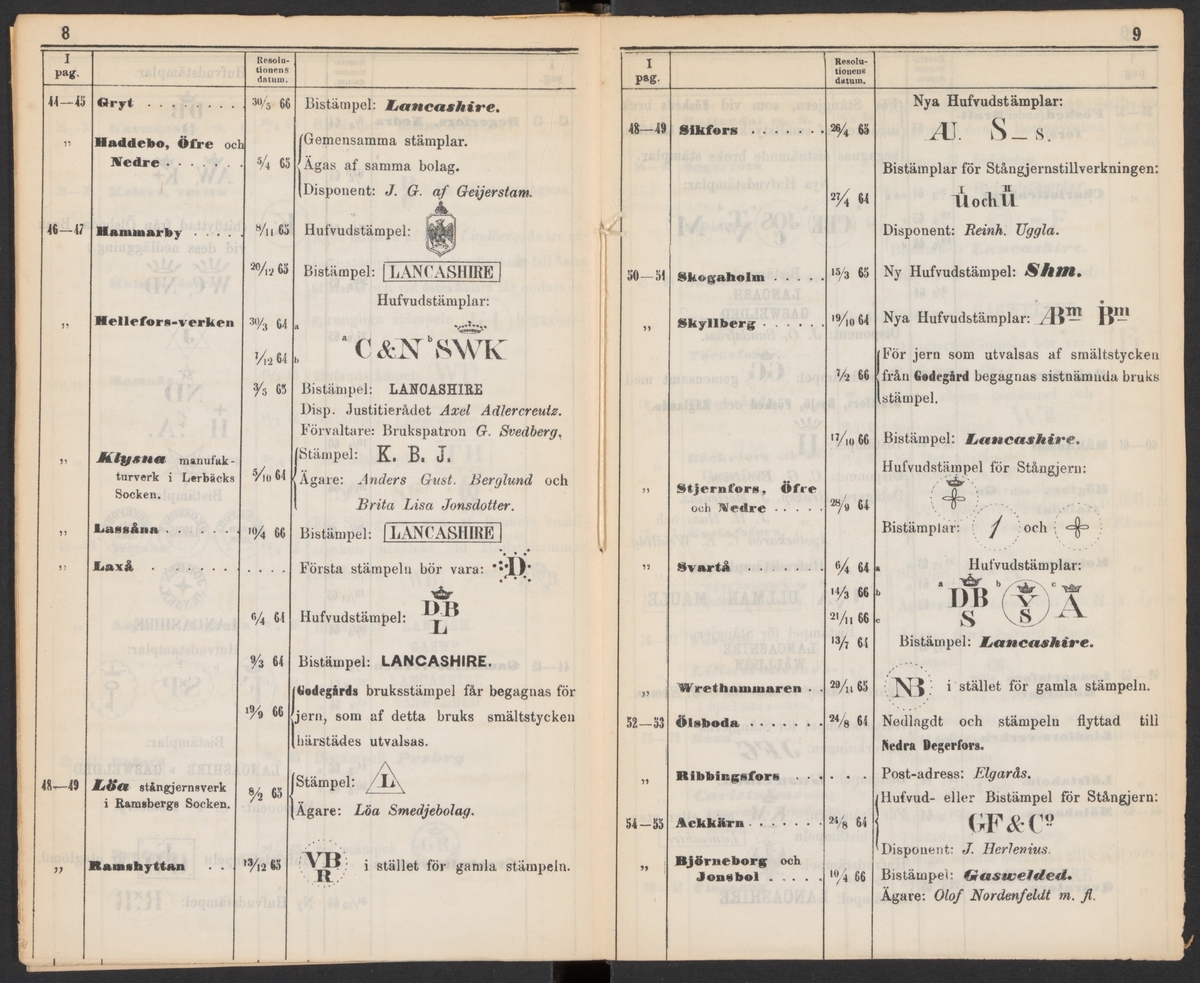 8
I
pag.
Resolu-
tionens
datum.
44—45 Gryt . . . . . . . . . 30/5 66 Bistämpel: Lancashire.
„ Haddebo, Öfre och
Nedre . . . . . . . 5/4 65
Gemensamma stämplar.
Ägas af samma bolag.
Disponent: J. G. af Geijerstam.
46—47 Hammarby . . . . . 8/11 65 Hufvudstämpel:
20/12 65 Bistämpel: LANCASHIRE
Hufvudstämplar:
„ Hellefors-verken 30/3 64 a
7/12 64 b
a C & N b SWK
3/5 65 Bistämpel: LANCASHIRE
Disp. Justitierådet Axel Adlercreutz.
Förvaltare: Brukspatron G. Svedberg,
„ Klysna manufak-
turverk i Lerbäcks
Socken.
5/10 64
Stämpel: K. B. J.
Ägare: Anders Gust. Berglund och
Brita Lisa Jonsdotter.
„ Lassåna . . . . . . . 10/4 66 Bistämpel: LANCASHIRE
„ Laxå . . . . . . . . . . . . . Första stämpeln bör vara: D
6/4 64 Hufvudstämpel: DB
L
9/3 64 Bistämpel: LANCASHIRE.
19/9 66
Godegårds bruksstämpel får begagnas för
jern, som af detta bruks smältstycken
härstädes utvalsas.
48—49 Löa stångjernsverk
i Ramsbergs Socken.
8/2 65
Stämpel: L
Ägare: Löa Smedjebolag.
„ Ramshyttan . . . 13/12 65 VB
R i stället för gamla stämpeln.
9
I
pag.
Resolu-
tionens
datum.
Nya Hufvudstämplar:
48—49 Sikfors . . . . . . . 26/4 65 ÆU. S – s.
Bistämplar för Stångjernstillverkningen:
27/4 64 I U och II U
Disponent: Reinh. Uggla.
50—51 Skogaholm . . . . . 15/3 65 Ny Hufvudstämpel: Shm.
„ Skyllberg . . . . . . 19/10 64 Nya Hufvudstämplar: ÆBm Bm
7/2 66
För jern som utvalsas af smältstycken
från Godegård begagnas sistnämnda bruks
stämpel.
17/10 66 Bistämpel: Lancashire.
Hufvudstämpel för Stångjern:
„ Stjernfors, Öfre
och Nedre . . . . . 28/9 64
Bistämplar: 1 och
„ Svartå . . . . . . . . 6/4 64 a Hufvudstämplar:
14/3 66 b
21/11 66 c
a DB
S b Y
S c A
13/7 64 Bistämpel: Lancashire.
„ Wrethammaren . . 29/11 65 NB i stället för gamla stämpeln.
52—53 Ölsboda . . . . . . . 24/8 64 Nedlagdt och stämpeln flyttad till
Nedra Degerfors.
„ Ribbingsfors . . . . . . Post-adress: Elgarås.
54—55 Ackkärn . . . . . . . 24/8 64
Hufvud- eller Bistämpel för Stångjern:
GF & Co
Disponent: J. Herlenius.
„ Björneborg och
Jonsbol . . . . . 10/4 66 Bistämpel: Gaswelded.
Ägare: Olof Nordenfeldt m. fl.